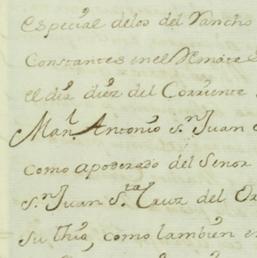 Especial delos del Rancho
Constantes en el Remate
el dia diez del Corriente
Man.l Antonio S.n Juan
como apoderado del Señor
S.n Juan S.ta Cruz del
su thio, como tambien en